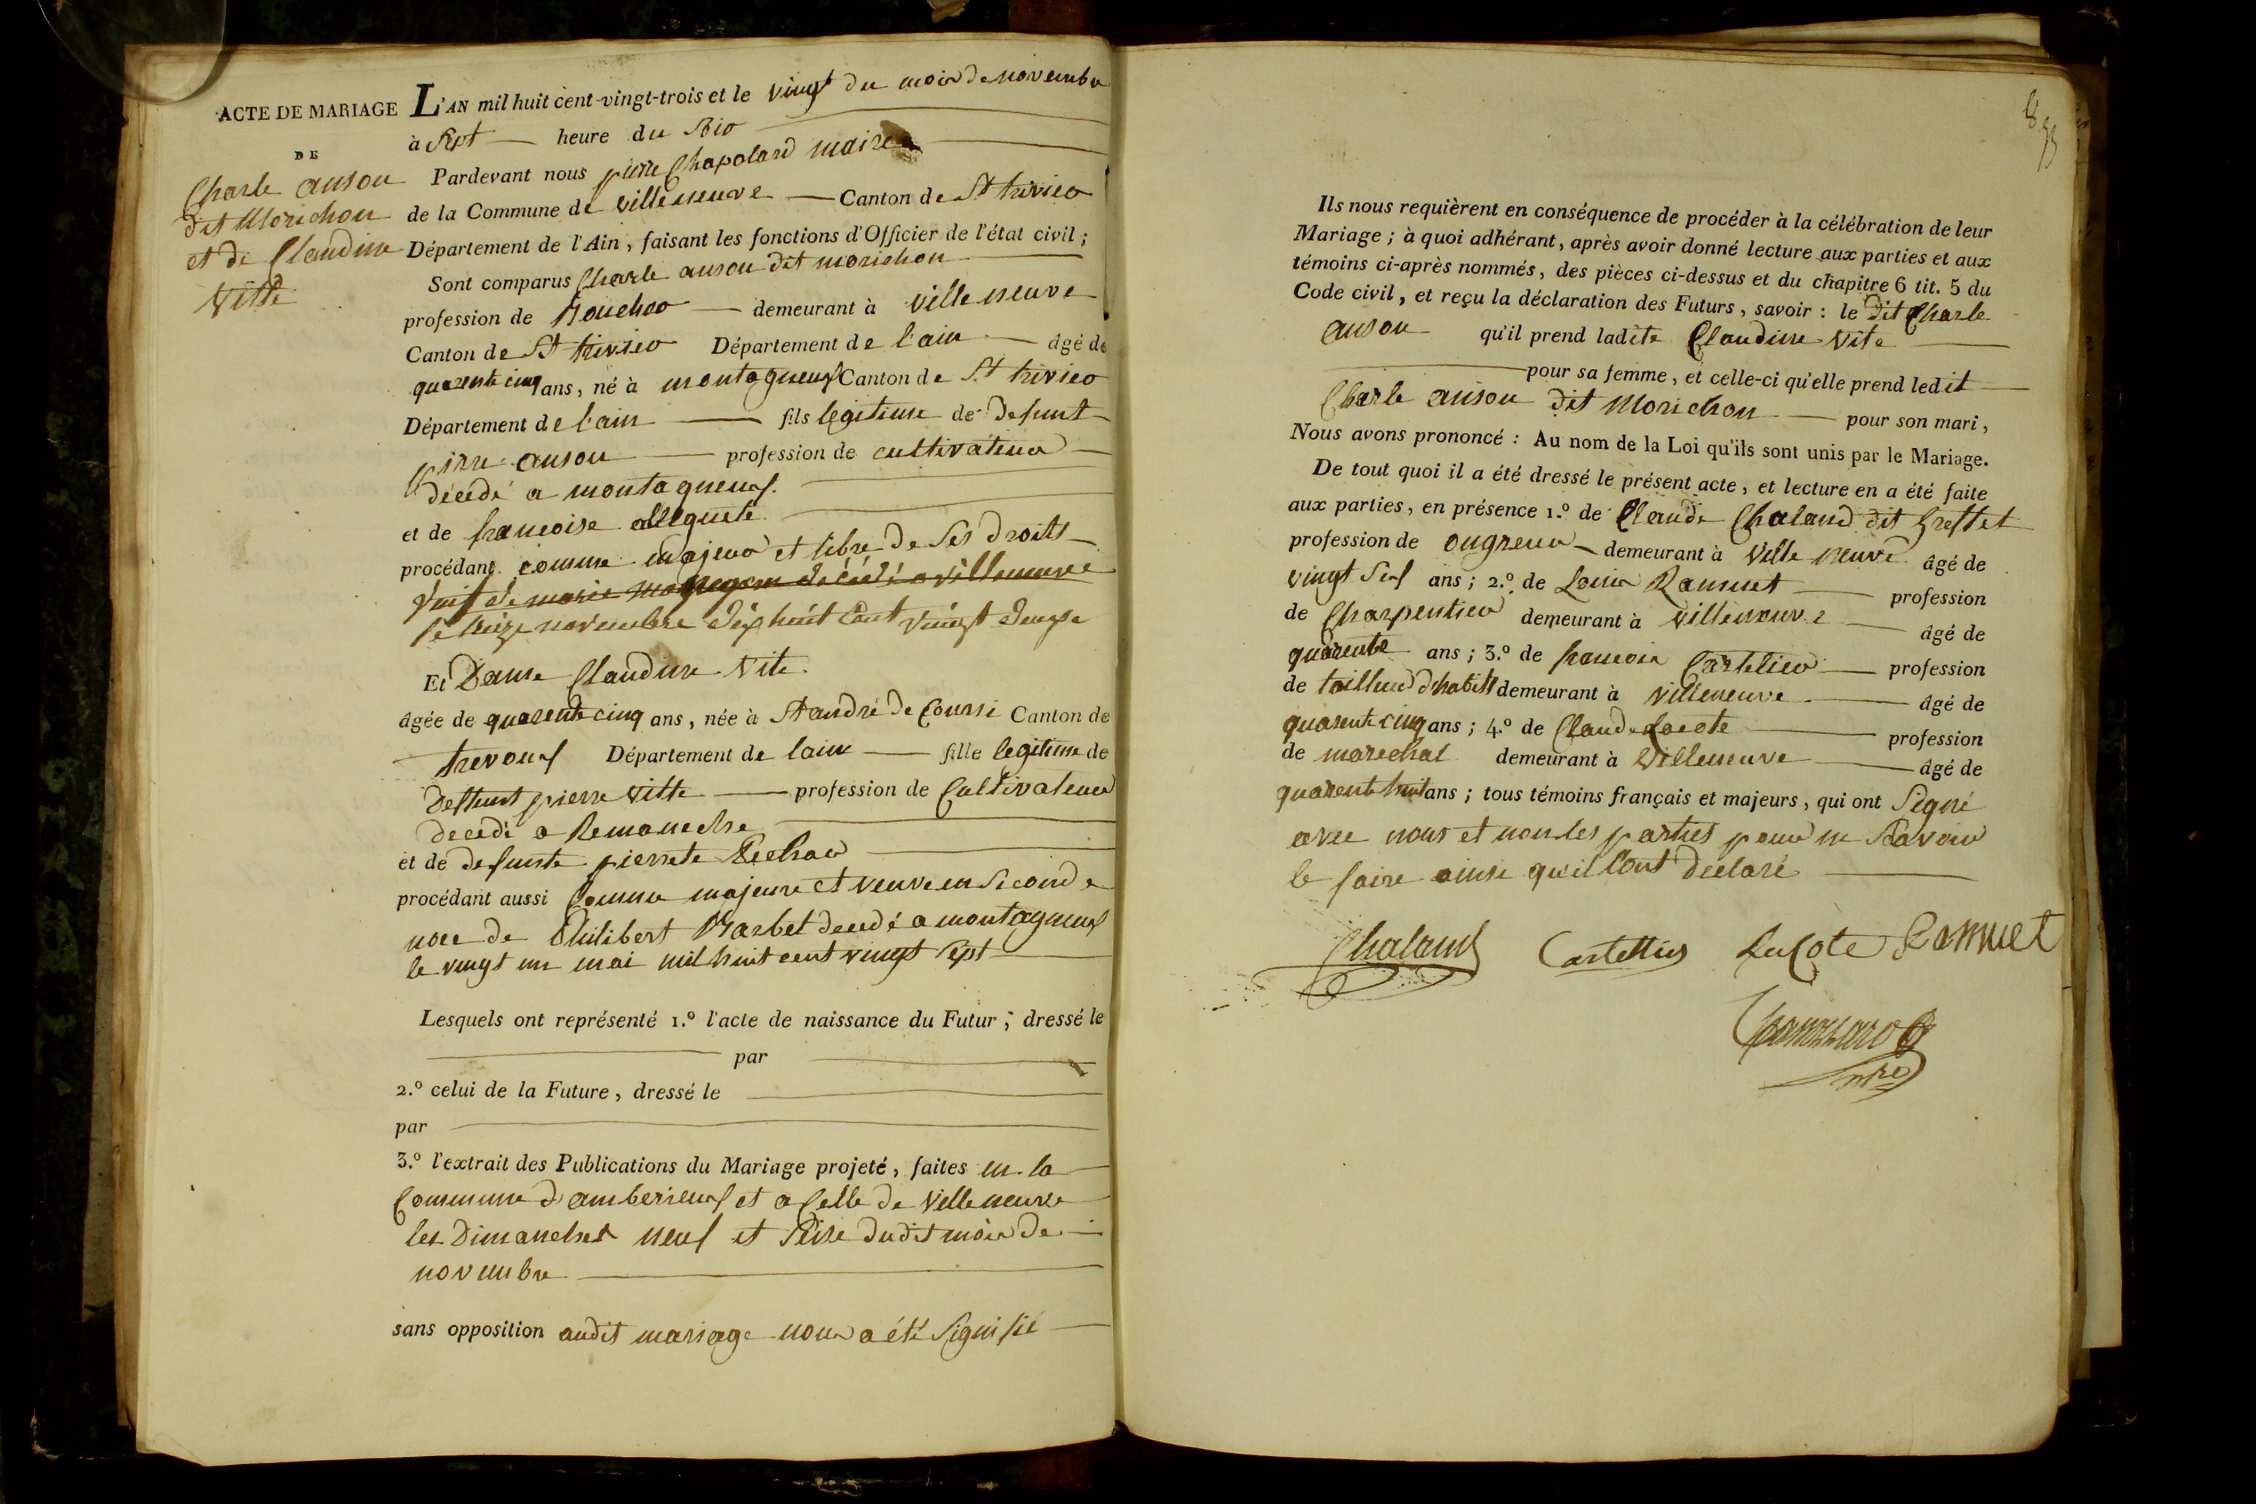 ACTE DE MARIAGE
DE
Charle anson
dit Morichon
et de Claudine
Vitte
L'AN mil huit cent-vingt-trois et le vingt du mois de novembre
à Sept heure du Soir
Pardevant nous pierre Chapolard maire
de la Commune de villeneuve Canton de St trivier
Département de l'Ain, faisant les fonctions d'Officier de l'état civil;
Sont comparus Charle anson dit morichon
profession de demeurant à villeneuve
Canton de St trivier Département de l'ain âgé de
quarente cinq ans, né à montagneux Canton de St trivier
Département de l'ain fils legitime de defunt
pierre anson profession de cultivateur
décédé a montagneux
et de francoise
procédant comme majeur et libre de ses droits
Veuf de marie décédé a villeneuve
le novembre dix huit cent vingt deux
Et Dame Claudine Vite
âgée de quarente cinq ans, née à St andré de Corsi Canton de
trevoux Département de lain fille legitime de
deffunt pierre vitte profession de Cultivateur
decedé a Romaneche
et de defunte pierrete
procédant aussi Comme majeure et veuve en Seconde
noce de Philibert Barbet decedé a montagneux
le vingt un mai mil huit cent vingt Sept
Lesquels ont représenté 1.º l'acte de naissance du Futur; dressé le
par
2.º celui de la Future, dressé le
par
3.º l'extrait des Publications du Mariage projeté, faites en la
Commune d'amberieux et a Celle de Villeneuve
les Dimanches neuf et Seise dudit mois de
novembre
sans opposition audit mariage nous a été Signifié
Ils nous requièrent en conséquence de procéder à la célébration de leur
Mariage; à quoi adhérant, après avoir donné lecture aux parties et aux
témoins ci-après nommés, des pièces ci-dessus et du chapitre 6 tit. 5 du
Code civil, et reçu la déclaration des Futurs, savoir: le dit Charle
anson qu'il prend ladite Claudine Vite
pour sa femme, et celle-ci qu'elle prend ledit
Charle anson dit Morichon pour son mari,
Nous avons prononcé: Au nom de la Loi qu'ils sont unis par le Mariage.
De tout quoi il a été dressé le présent acte, et lecture en a été faite
aux parties, en présence 1.º de Claude Chaland dit
profession de demeurant à Ville neuve âgé de
vingt Six ans; 2.º de Louis Ramuet profession
de Charpentier demeurant à villeneuve âgé de
quarente ans; 3.º de francois Cartelier profession
de tailleur d'habits demeurant à villeneuve âgé de
quarente cinq ans; 4.º de Claude Lacote profession
de marechal demeurant à Villeneuve âgé de
quarente huit ans; tous témoins français et majeurs, qui ont Signé
avec nous et non les parties pour ne Savoir
le faire ainsi qu'il l'ont declaré
Chaland Cartellier LaCote Ramuet